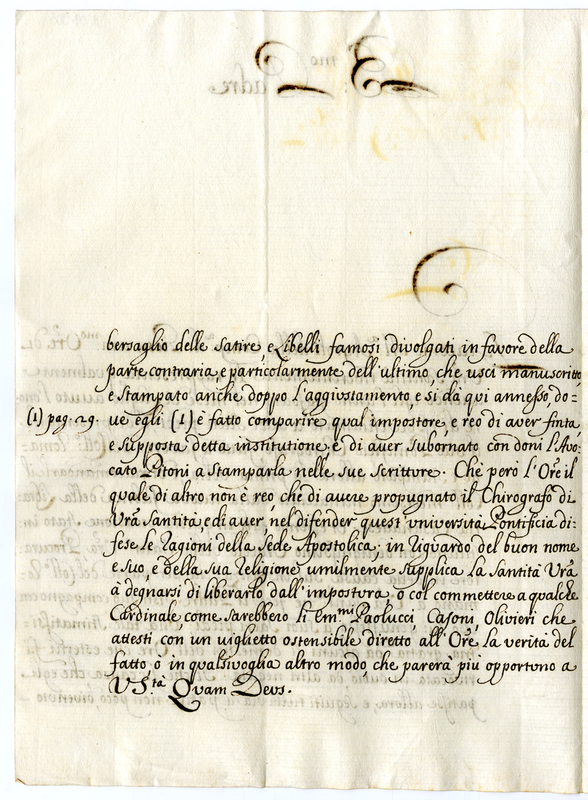 bersaglio delle satire, e Libelli famosi divolgati in favore della
parte contraria, e particolarmente dell'ultimo, che uscì manuscritto
e stampato anche doppo l'aggiustamento, e si dà qui annesso, do=
(1) pag. 29. ve egli (1) è fatto comparire qual impostore, e reo di aver finta
e supposta detta institutione, e di aver subornato con doni l'Avo=
cato Pitoni a stamparla nelle sue scritture. Che però l'Ore il
quale di altro non è reo, che di avere propugnato il Chirografo di
Vrã Santità, e di aver, nel difender quest'università Pontificia di=
fese le ragioni della Sede Apostolica; in riguardo del buon nome
e suo, e della sua religione umilmente supplica la Santità Vrã
à degnarsi di liberarlo dall'impostura, o col commettere a qualche
Cardinale come sarebbero li Em.mi Paolucci, Casoni, Olivieri che
attesti con un viglietto ostensibile diretto all'Ore la verità del
fatto, o in qualsivoglia altro modo, che parerà più opportuno a
V S.tà Quam Deus.